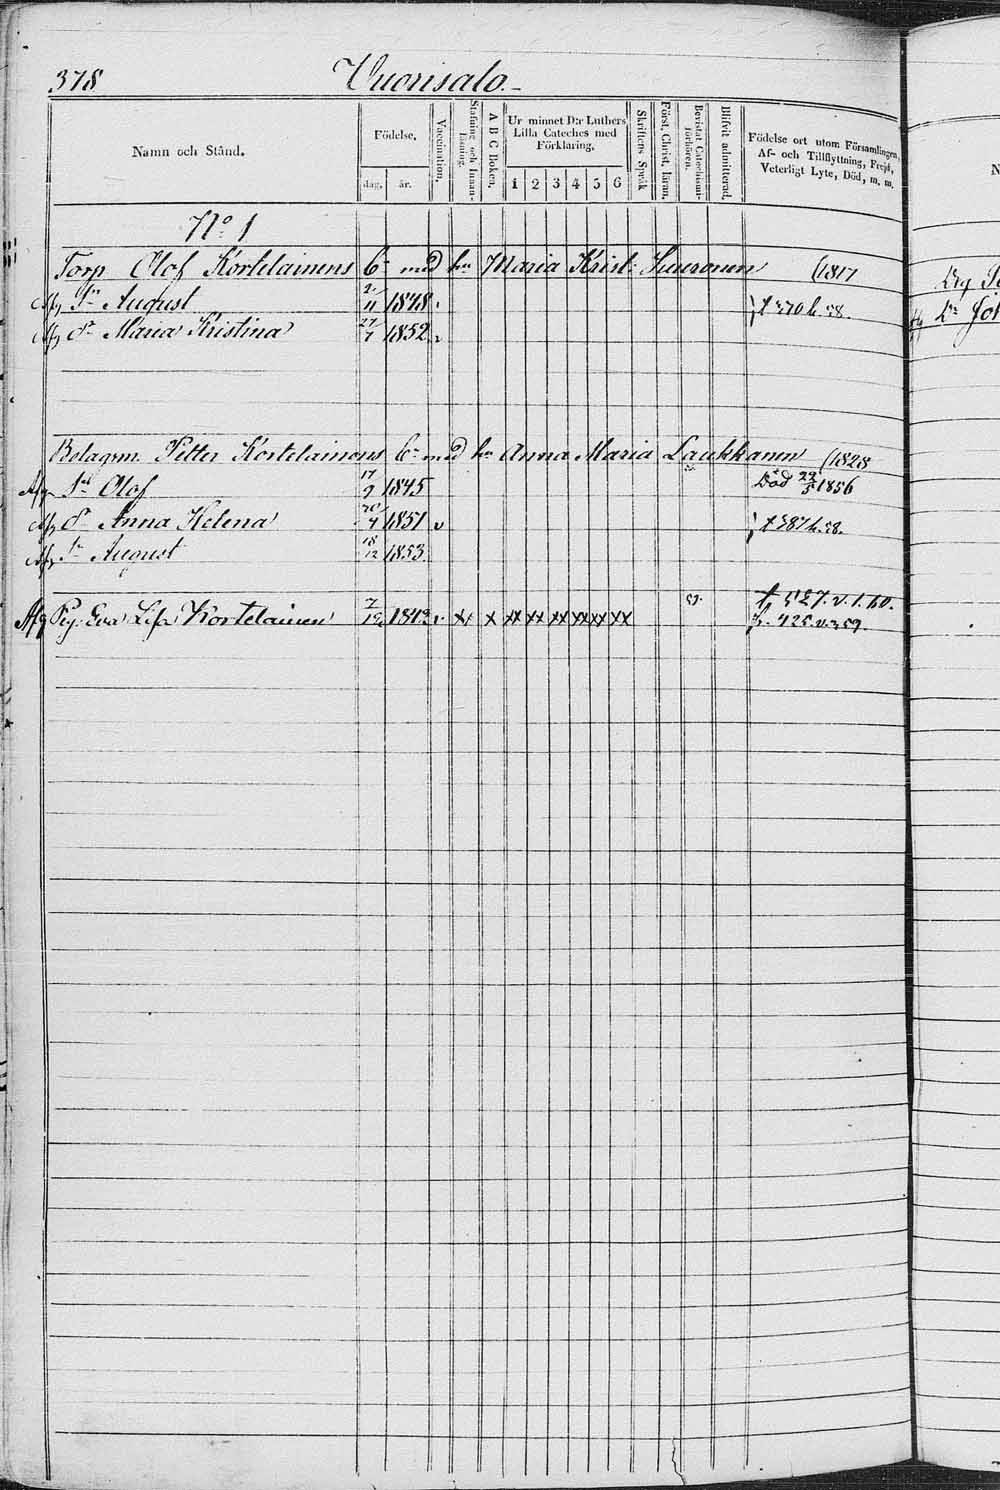 378 Vuorisalo.
Namn och Stånd.
Födelse.
dag. år.
Vaccination.
Stafning och Innanläsning.
A B C Boken.
Ur minnet D:r Luthers Lilla Cateches med Förklaring.
1 2 3 4 5 6
Skriftens Språk
Först. Christ. läran.
Bevistat Catechismiförhören.
Blifvit admitterad.
Födelse ort utom Församlingen,
Af- och Tillflyttning, Frejd,
Veterligt Lyte, Död, m. m.
No 1
Torp Olof Kortelainens med Maria Krist: Suuronen (1817
Afg Sn August 11 1848
Afg dr Maria Kristina 27/7 1852
Bolagsm. Petter Kortelainens med Anna Maria Laukkanen (1828
Afg Sn Olof 17/9 1845 Död 22/5 1856
Afg dr Anna Helena 1851 v 387 h. 58.
Afg Sn August 18/12 1853
Afg Pig. Eva Lisa Kortelainen 7/12 1842 v x x xx xx xx xx xx xx 59. 527. v. 1. 60.
425. v. 59.